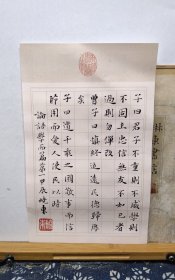 子曰君子不重則不威學則
不固主忠信無友不如己者
過則勿憚改
曾子曰慎終追遠民德歸厚
矣
子曰道千乘之國敬事而信
節用而愛人使民以時
論語學而篇第一甲辰曉東